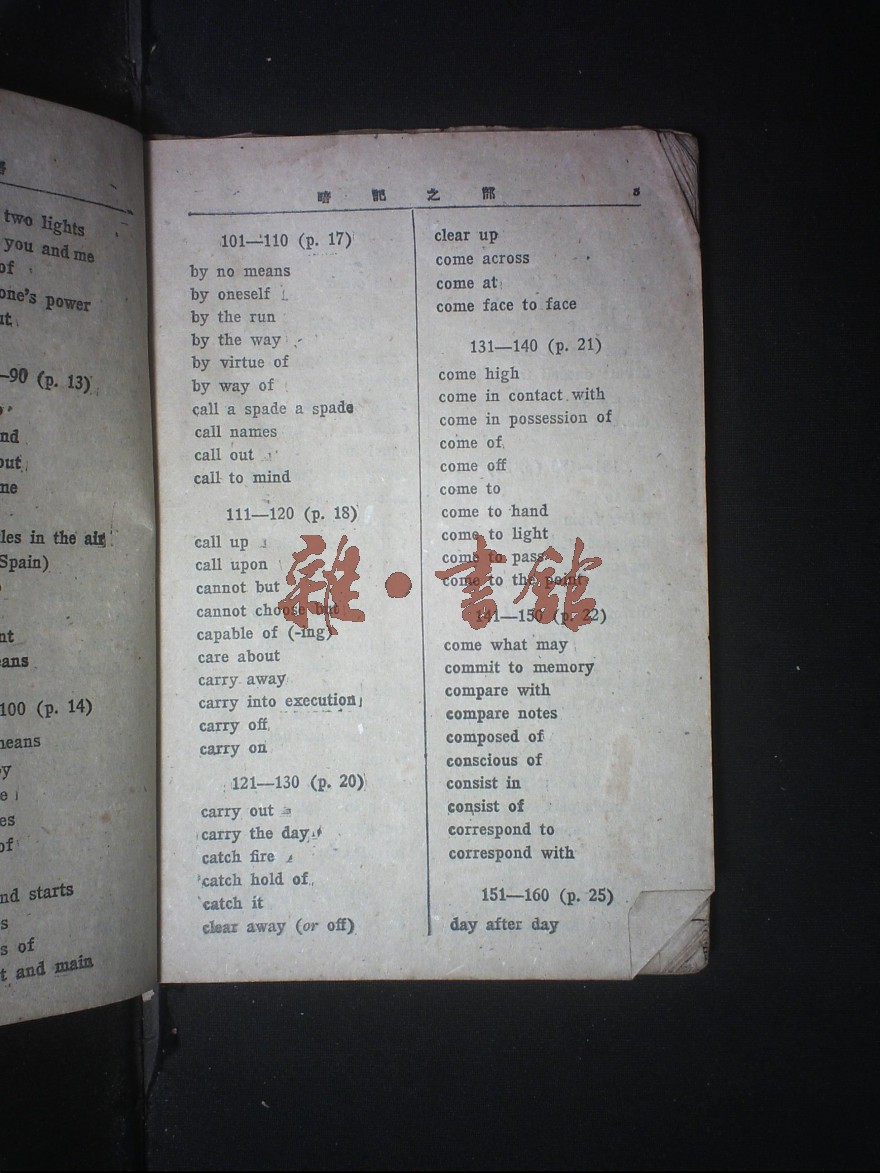 two lights
you and me
of
one's power
ut
—90 (p. 13)
nd
out
ne
les in the air
Spain)
nt
eans
100 (p. 14)
neans
y
e
es
of
nd starts
s
s of
t and main
暗記之部 5
101—110 (p. 17)
by no means
by oneself
by the run
by the way
by virtue of
by way of
call a spade a spade
call names
call out
call to mind
111—120 (p. 18)
call up
call upon
cannot but
cannot choose but
capable of (-ing)
care about
carry away
carry into execution
carry off
carry on
121—130 (p. 20)
carry out
carry the day
catch fire
catch hold of
catch it
clear away (or off)
clear up
come across
come at
come face to face
131—140 (p. 21)
come high
come in contact with
come in possession of
come of
come off
come to
come to hand
come to light
come to pass
come to the point
141—150 (p. 22)
come what may
commit to memory
compare with
compare notes
composed of
conscious of
consist in
consist of
correspond to
correspond with
151—160 (p. 25)
day after day
雜·書館